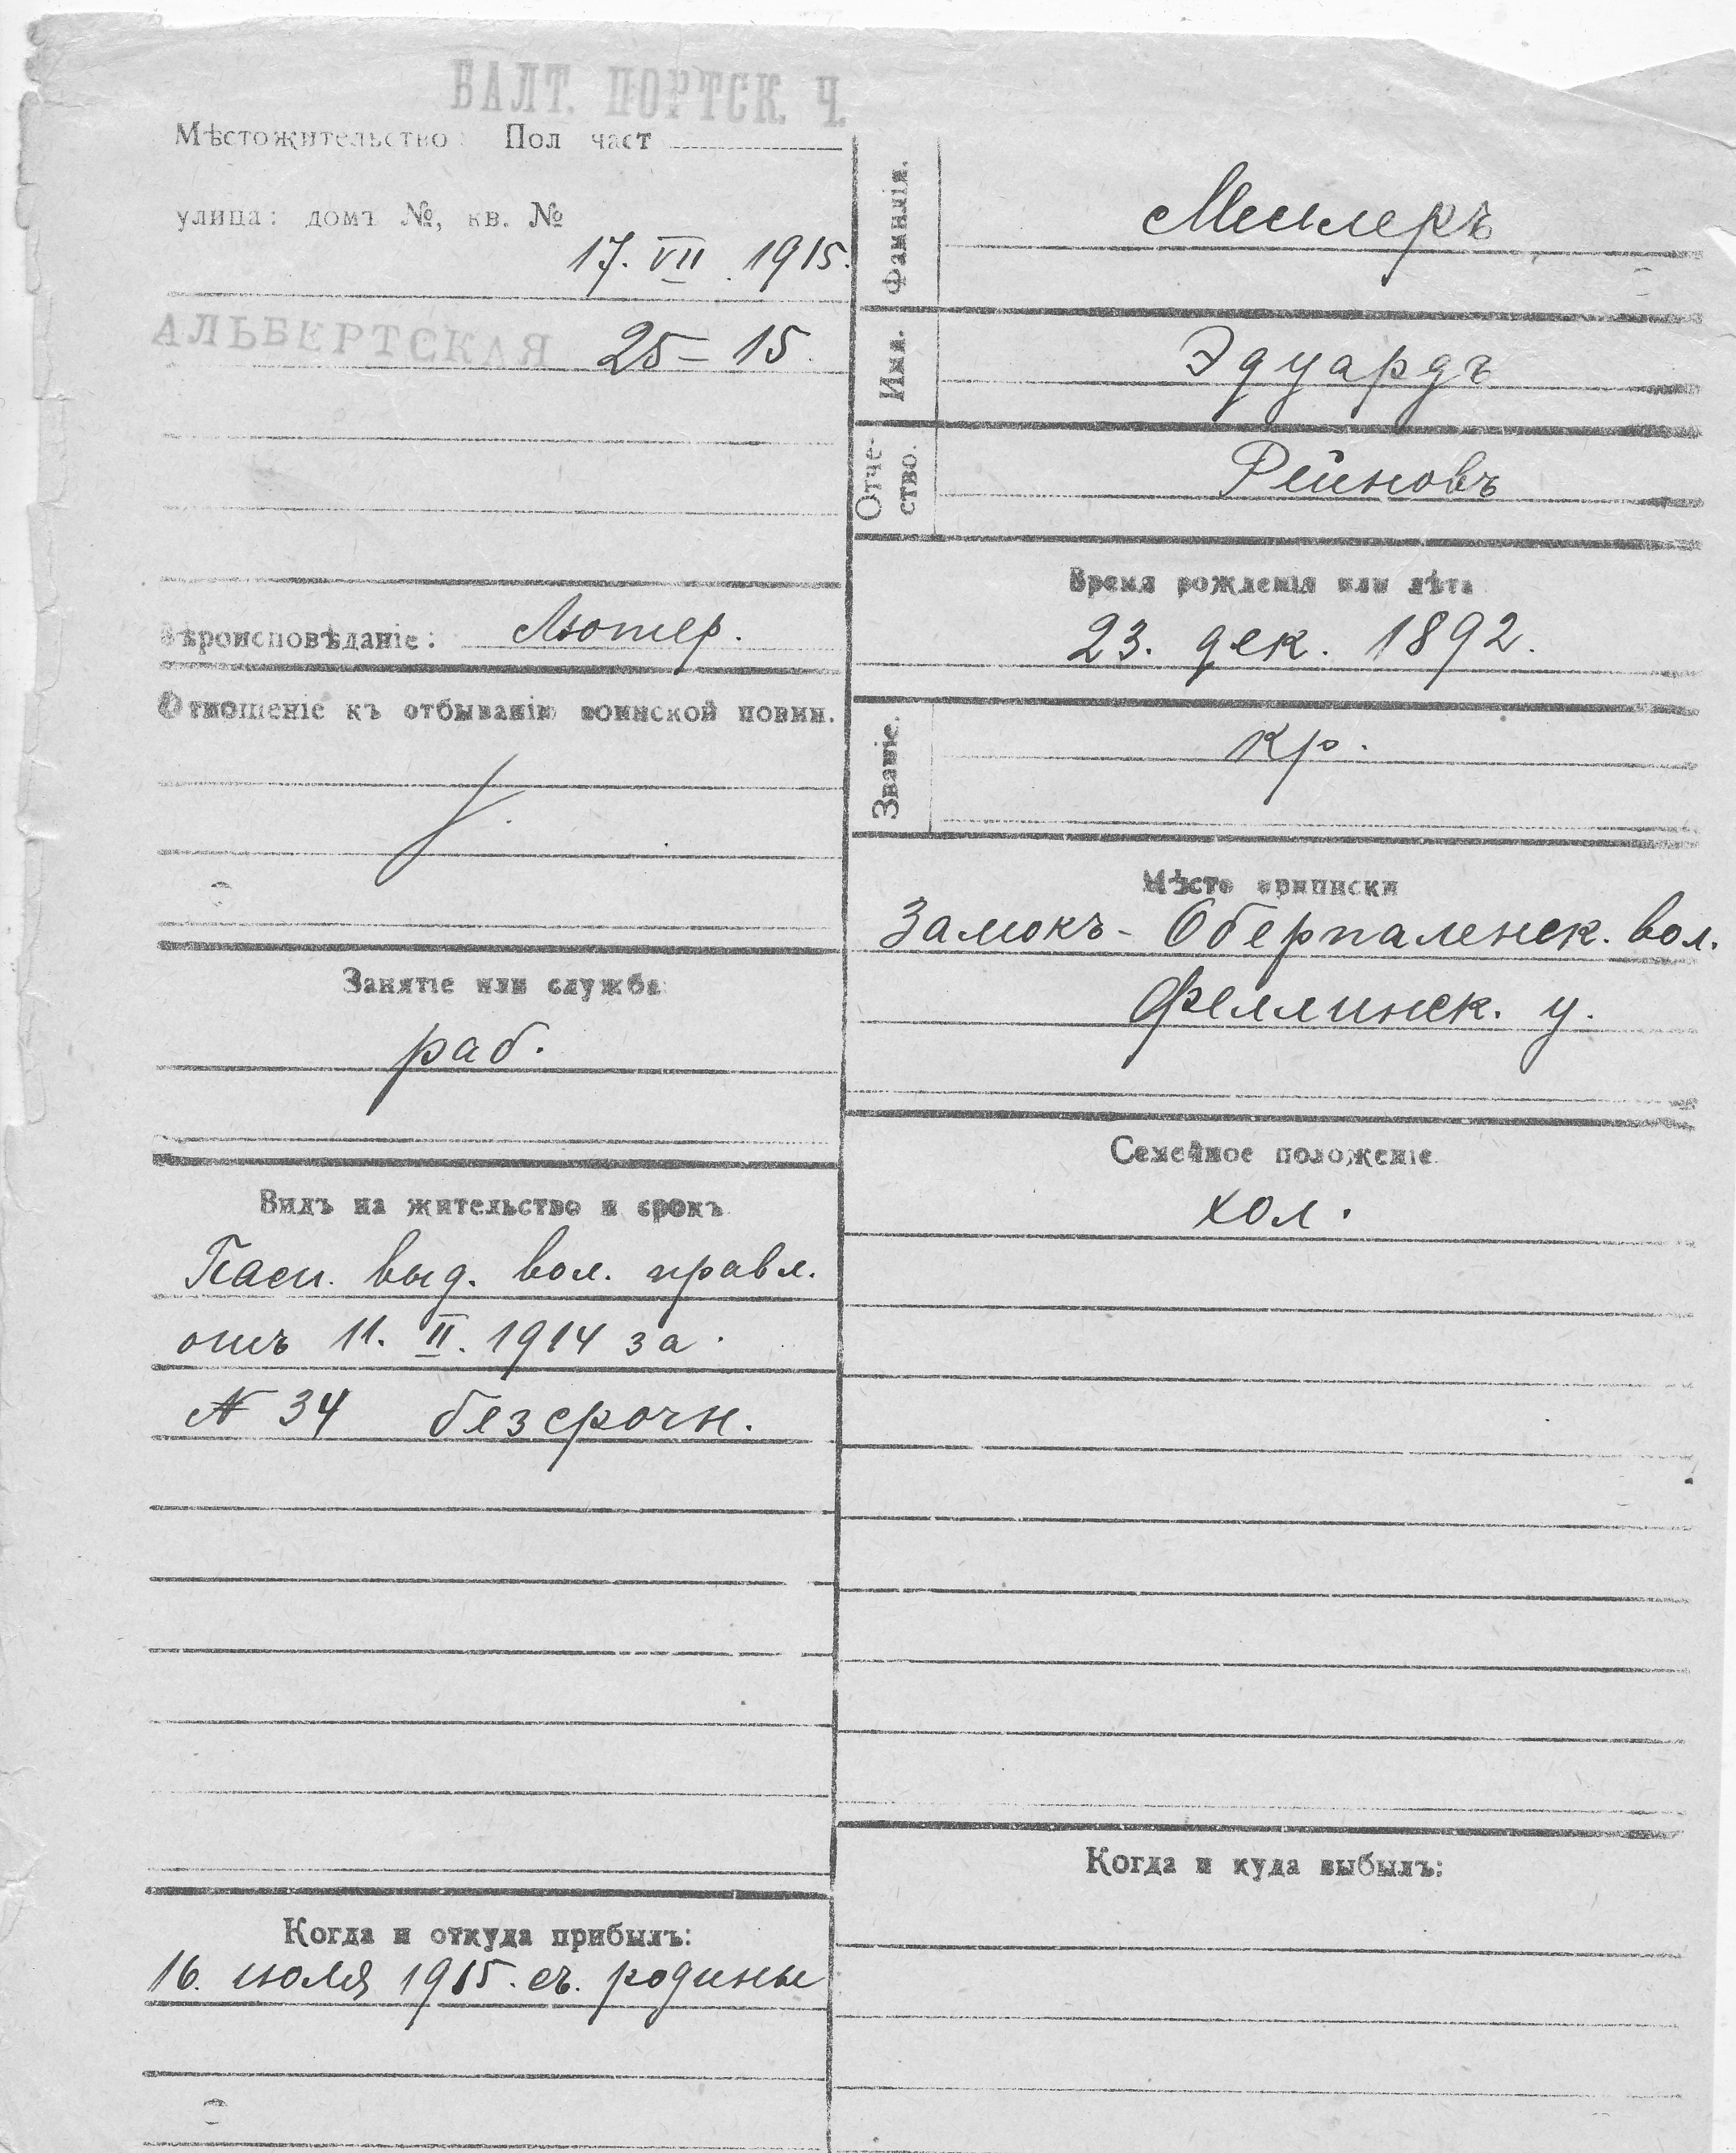 БАЛТ. ПОРТСК. Ч.
Мѣстожительство: Пол част
улица: домъ №, кв. №
17. VII. 1915.
АЛЬБЕРТСКАЯ 25 = 15.
Вѣроисповѣданіе: Лютер.
Отношеніе къ отбыванію воинской повин.
Занятіе или служба
раб.
Видъ на жительство и срокъ
Пасп. выд. вол. правл.
отъ 11. II. 1914 за
№ 34 безсрочн.
Когда и откуда прибылъ:
16. июля 1915. съ. родины
Фамилія. Миллеръ
Имя. Эдуардъ
Отче-
ство. Рейновъ
Время рожденія или лѣта
23. дек. 1892.
Званіе. кр.
Мѣсто приписки
Замокъ- Оберпаленск. вол.
Феллинск. у.
Семейное положеніе
хол.
Когда и куда выбылъ: